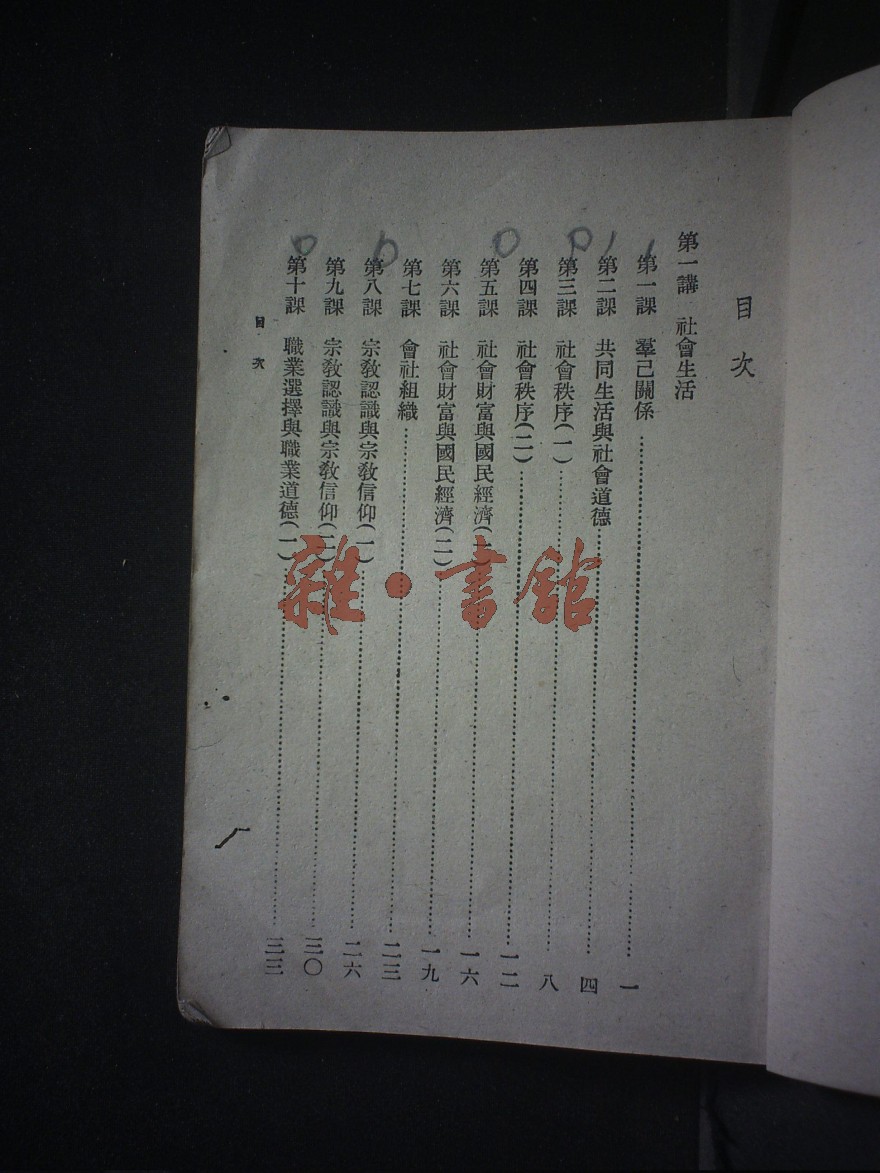 目次
第一講 社會生活
第一課 羣己關係……一
第二課 共同生活與社會道德……四
第三課 社會秩序(一)……八
第四課 社會秩序(二)……一二
第五課 社會財富與國民經濟(一)……一六
第六課 社會財富與國民經濟(二)……一九
第七課 會社組織……二三
第八課 宗教認識與宗教信仰(一)……二六
第九課 宗教認識與宗教信仰(二)……三〇
第十課 職業選擇與職業道德(一)……三三
目次
雜·書館